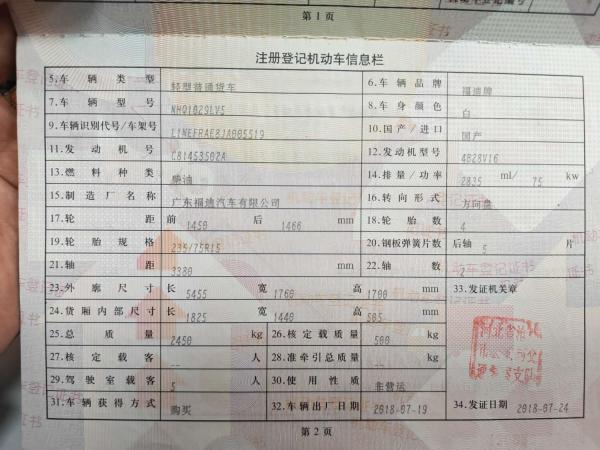 第1页
注册登记机动车信息栏
5.车辆类型 轻型普通货车 6.车辆品牌 福迪牌
7.车辆型号 NHQ1029LV5 8.车身颜色 白
9.车辆识别代号/车架号 L1NEFRAE8JA005519 10.国产/进口 国产
11.发动机号 C81453502A 12.发动机型号 4B28V16
13.燃料种类 柴油 14.排量/功率 2835 ml/ 75 kw
15.制造厂名称 广东福迪汽车有限公司 16.转向形式 方向盘
17.轮距 前 1450 后 1466 mm 18.轮胎数 4
19.轮胎规格 235/75R15 20.钢板弹簧片数 后轴 5 片
21.轴距 3380 mm 22.轴数 2
23.外廓尺寸 长 5455 宽 1760 高 1700 mm 33.发证机关章
24.货厢内部尺寸 长 1825 宽 1440 高 505 mm
25.总质量 2450 kg 26.核定载质量 500 kg
27.核定载客 -- 人 28.准牵引总质量 -- kg
29.驾驶室载客 5 人 30.使用性质 非营运
31.车辆获得方式 购买 32.车辆出厂日期 2018-07-19 34.发证日期 2018-07-24
第2页